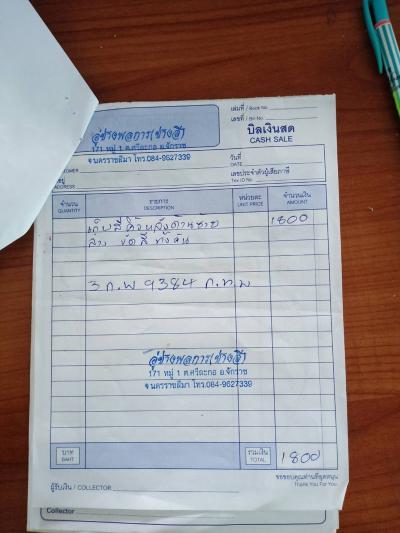 เล่มที่ / Book No.
เลขที่ / Bill No.
บิลเงินสด
CASH SALE
อู่ช่างพลการ(ช่างอี)
171 หมู่ 1 ต.ศรีละกอ อ.จักราช
จ.นครราชสีมา โทร.084-9627339
วันที่
DATE
เลขประจำตัวผู้เสียภาษี
Tax ID No.
ADDRESS
จำนวน
QUANTITY
รายการ
DESCRIPTION
หน่วยละ
UNIT PRICE
จำนวนเงิน
AMOUNT
เก็บสีโค้งหลังด้านซ้าย 1800
ล้าง ขัดสี ทั้งคัน
3 ก.พ 9384 ก.ท.ม
อู่ช่างพลการ(ช่างอี)
171 หมู่ 1 ต.ศรีละกอ อ.จักราช
จ.นครราชสีมา โทร.084-9627339
บาท
BAHT
รวมเงิน
TOTAL
1800
ผู้รับเงิน / COLLECTOR
ขอขอบคุณท่านที่อุดหนุน
Thank You For You
Collector